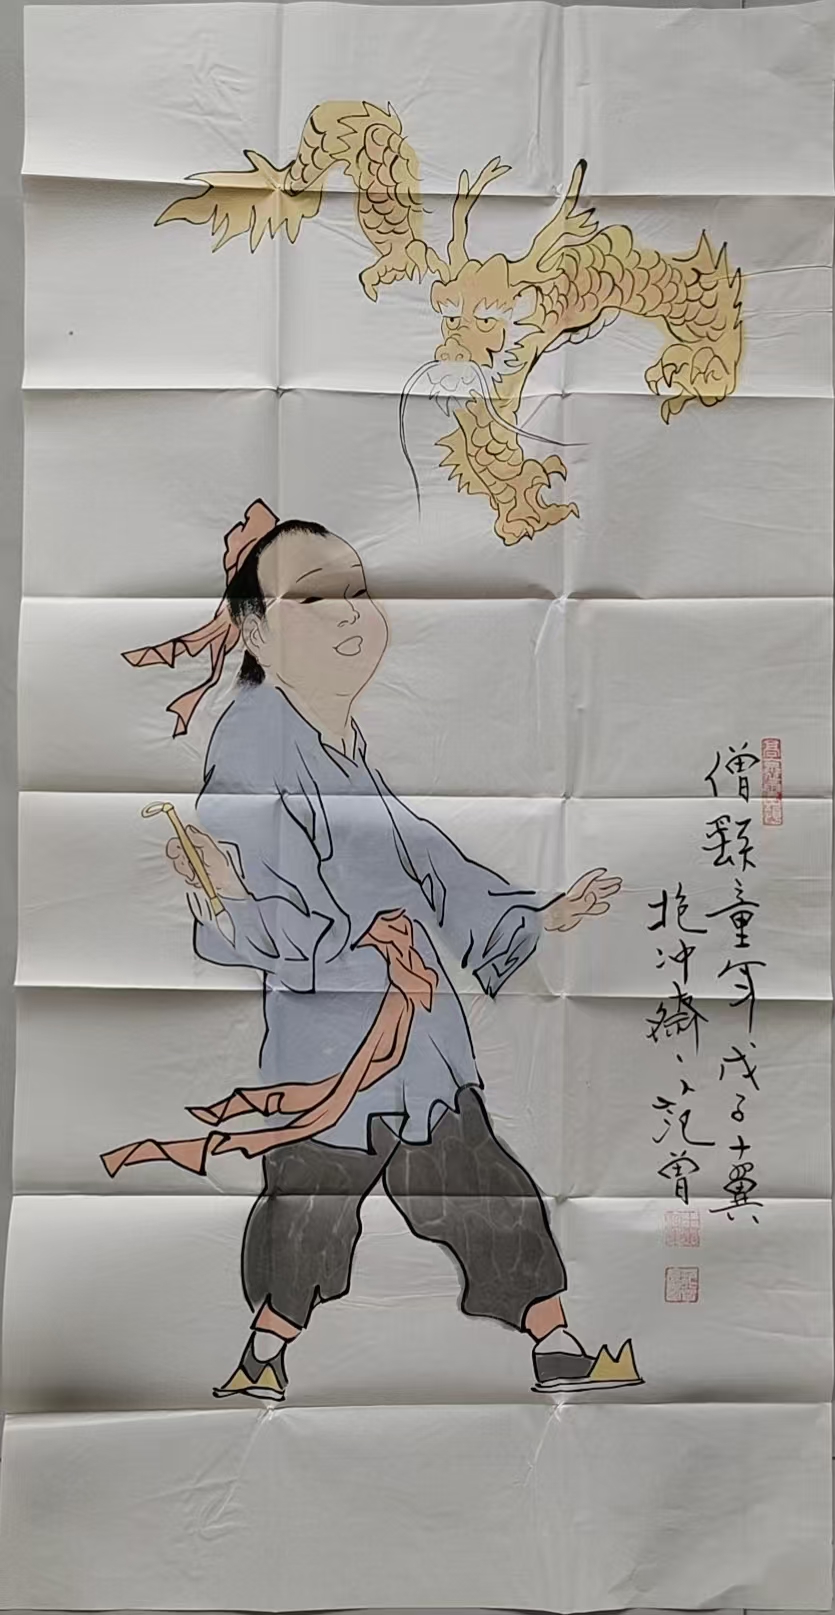 僧繇童年戊子十翼
抱冲齋范曾